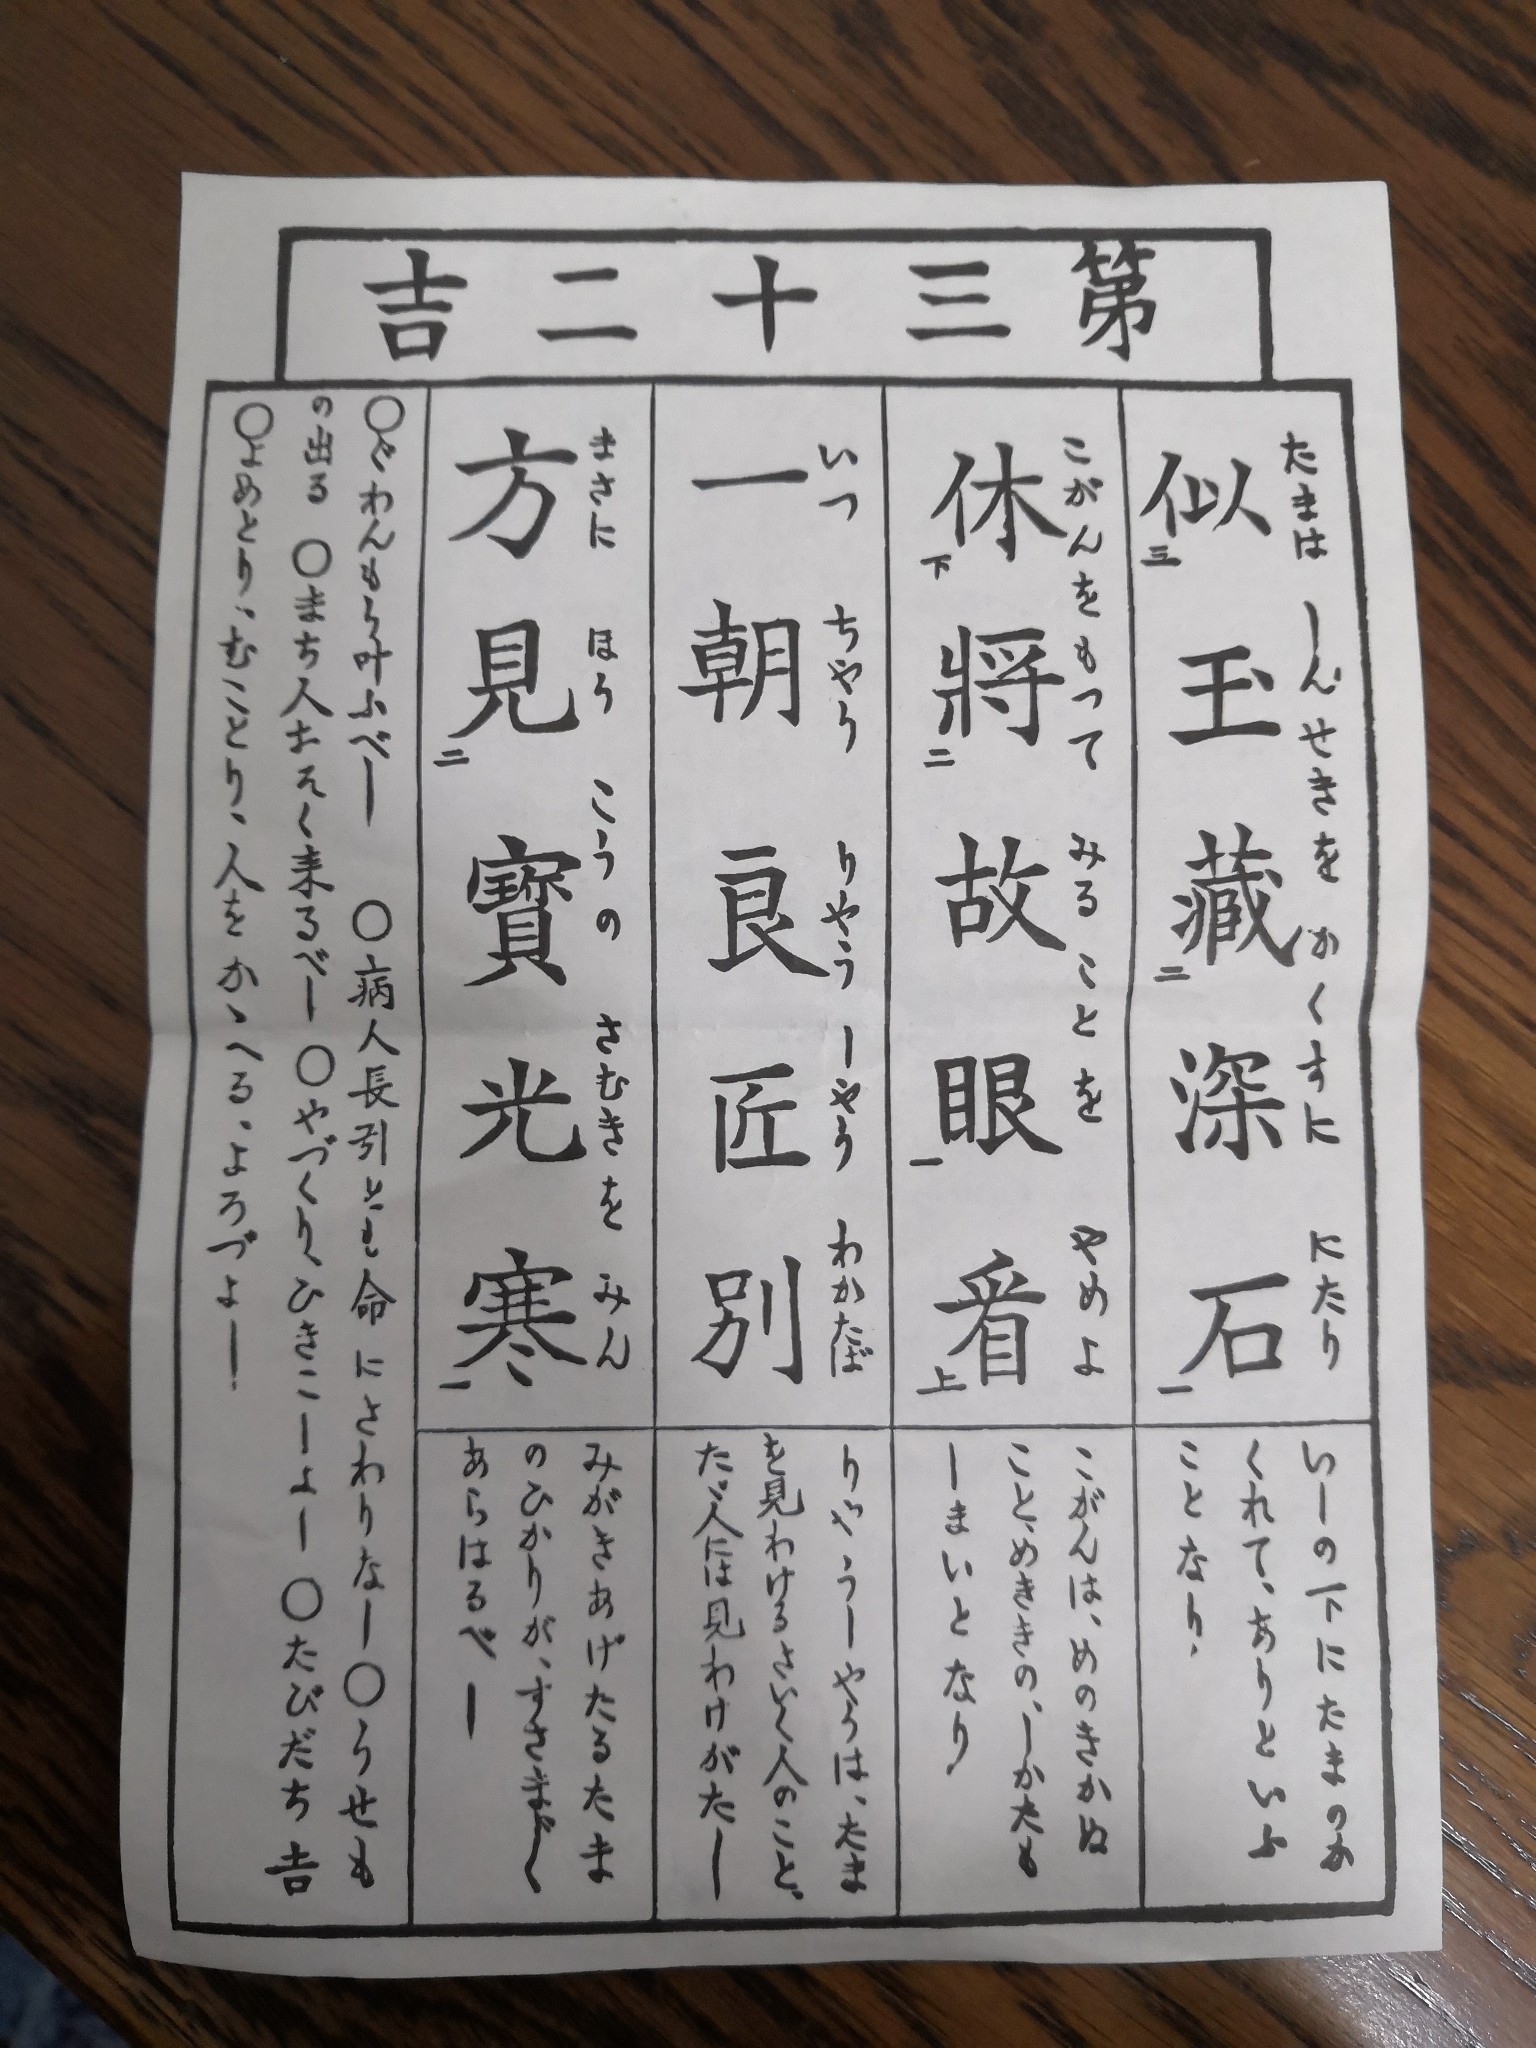 第三十二吉
たまは しんせきを かくすに にたり
似三玉藏二深石一
いしの下にたまのか
くれて、ありといふ
ことなり、
こがんをもつて みることを やめよ
休下將二故眼一看上
こがんは、めのきかぬ
こと、めききの、しかたも
しまいとなり
いつ ちやう りやう しやう わかたば
一朝良匠別
りやうしやうは、たま
を見わけるさいく人のこと、
たゞ人には見わけがたし
まさに ほう こうの さむきを みん
方見二寶光寒一
みがきあげたるたま
のひかりが、すさまじく
あらはるべし
○ぐわんもう叶ふべし ○病人長引とも命にさわりなし ○うせも
の出る ○まち人おそく来るべし ○やづくり、ひきこしよし ○たびだち吉
○よめとり、むことり、人をかゝへる、よろづよし